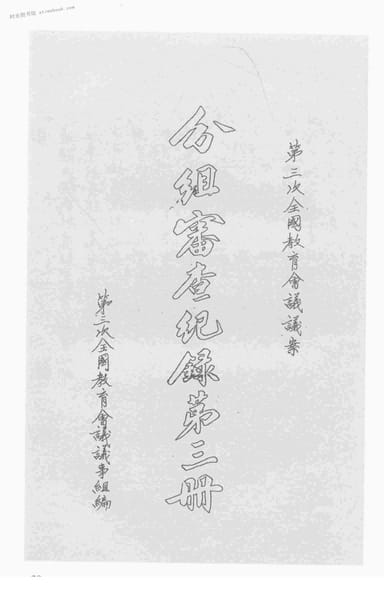 第三次全國教育會議議案
分組審查紀錄第三冊
第三次全國教育會議議事組編